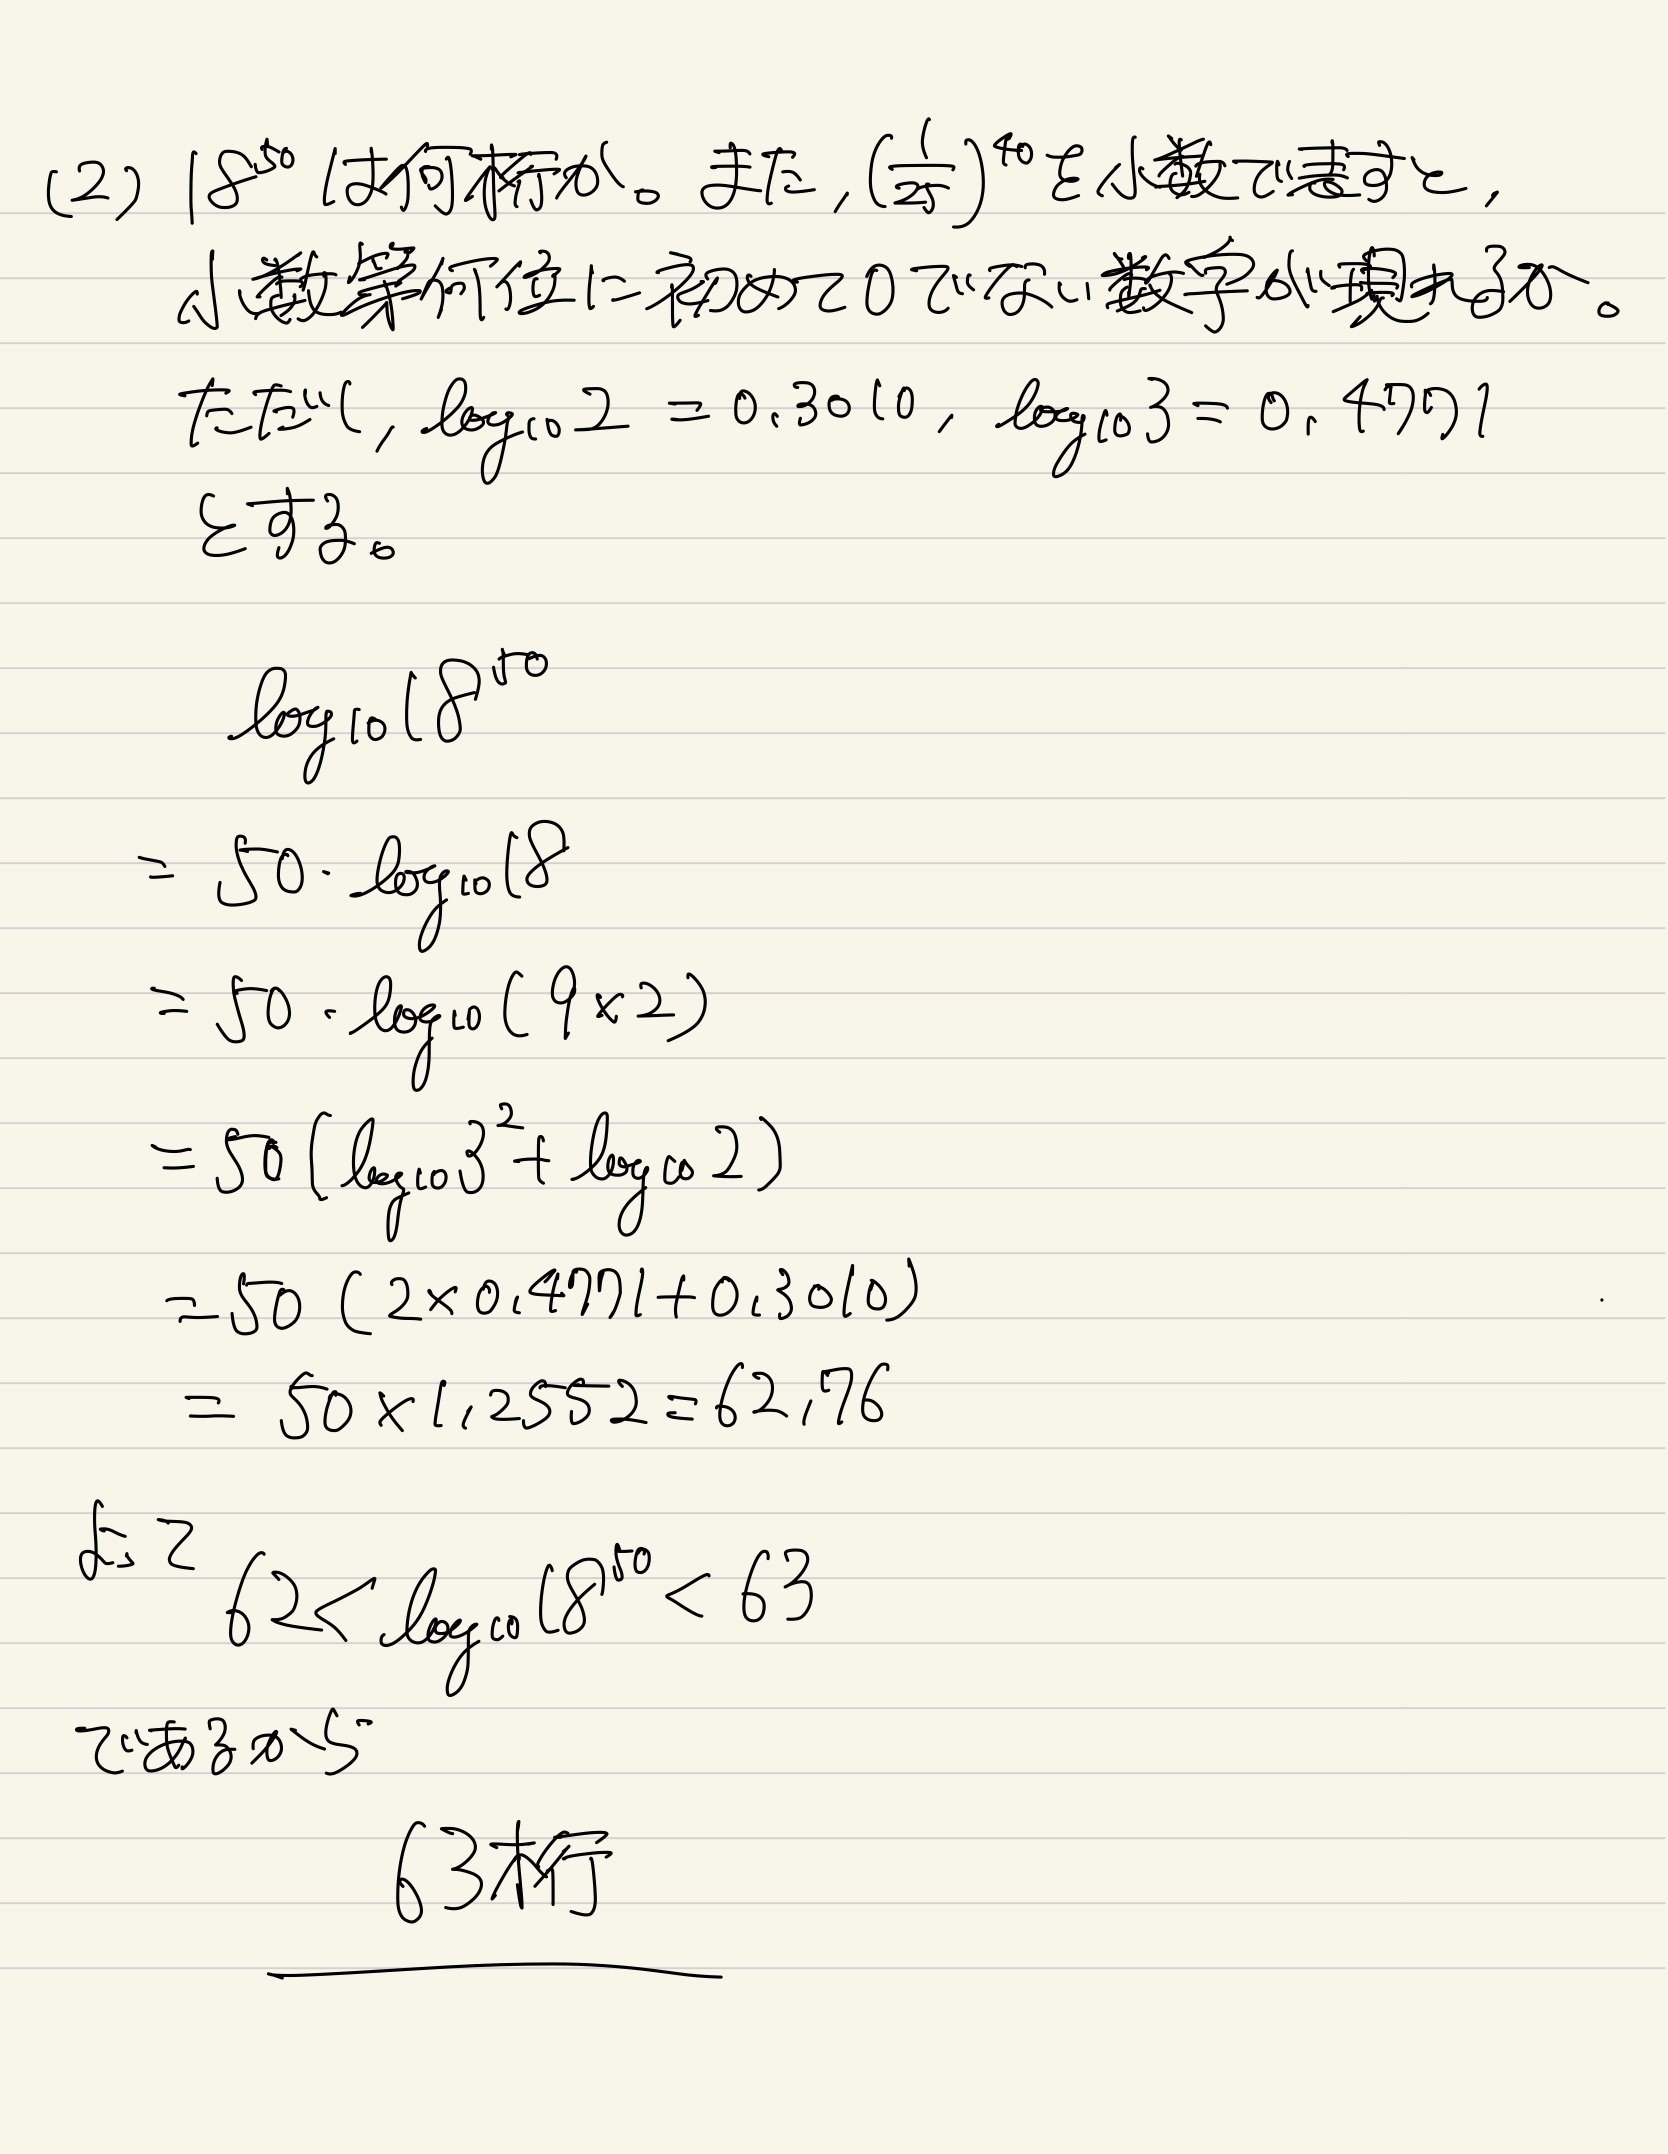 (2) 18^50 は何桁か。また, (1/25)^40 を小数で表すと,
小数第何位に初めて0でない数字が現れるか。
ただし, log₁₀2 = 0.3010, log₁₀3 = 0.4771
とする。
log₁₀18^50
= 50・log₁₀18
= 50・log₁₀(9×2)
= 50(log₁₀3² + log₁₀2)
= 50(2×0.4771+0.3010)
= 50×1.2552 = 62.76
よって
62 < log₁₀18^50 < 63
であるから
63桁